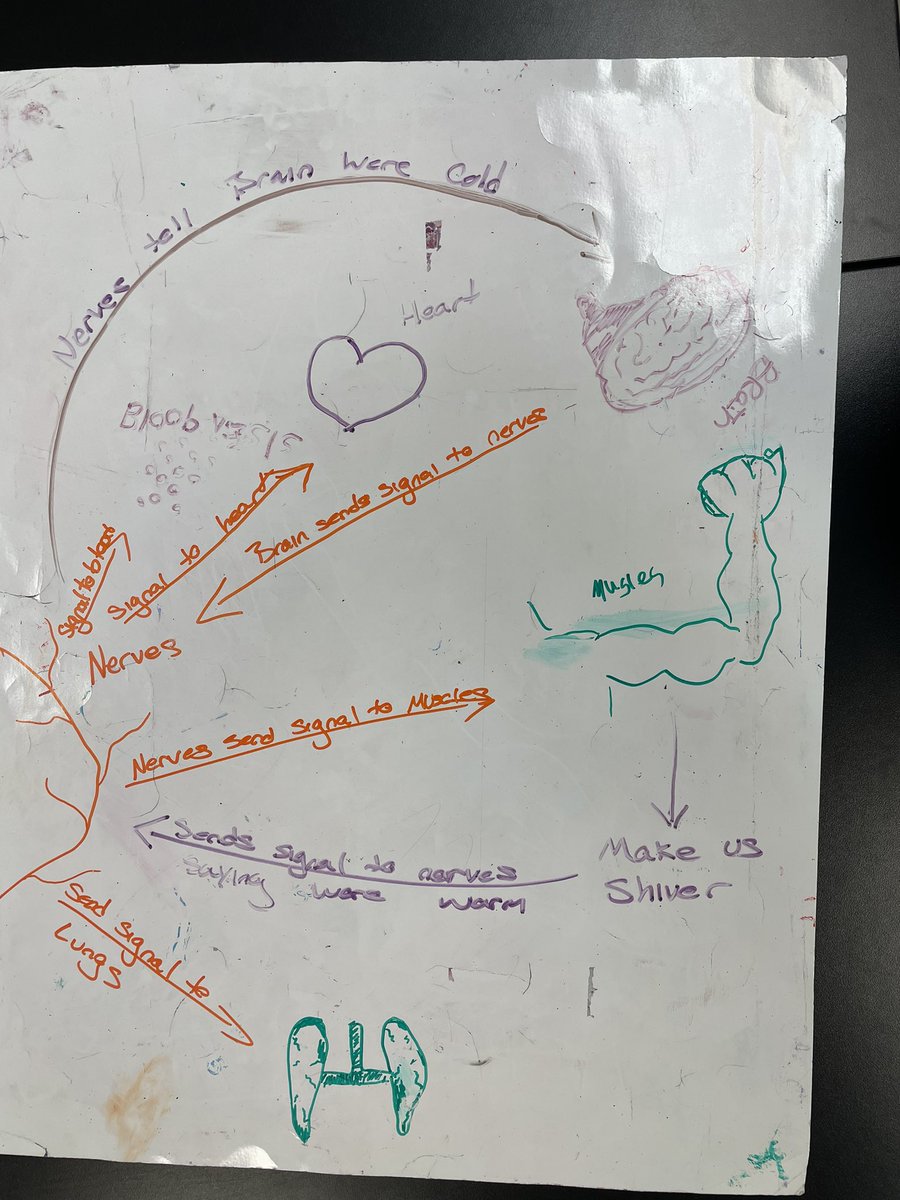 Nerves tell Brain were Cold
Heart
Brain
Bloob
Signal to blood
Signal to heart
Brain sends signal to nerves
Nerves
Musles
Nerves send signal to Muscles
Sends signal to nerves
saying were warm
Make us
Shiver
Send signal to
Lungs